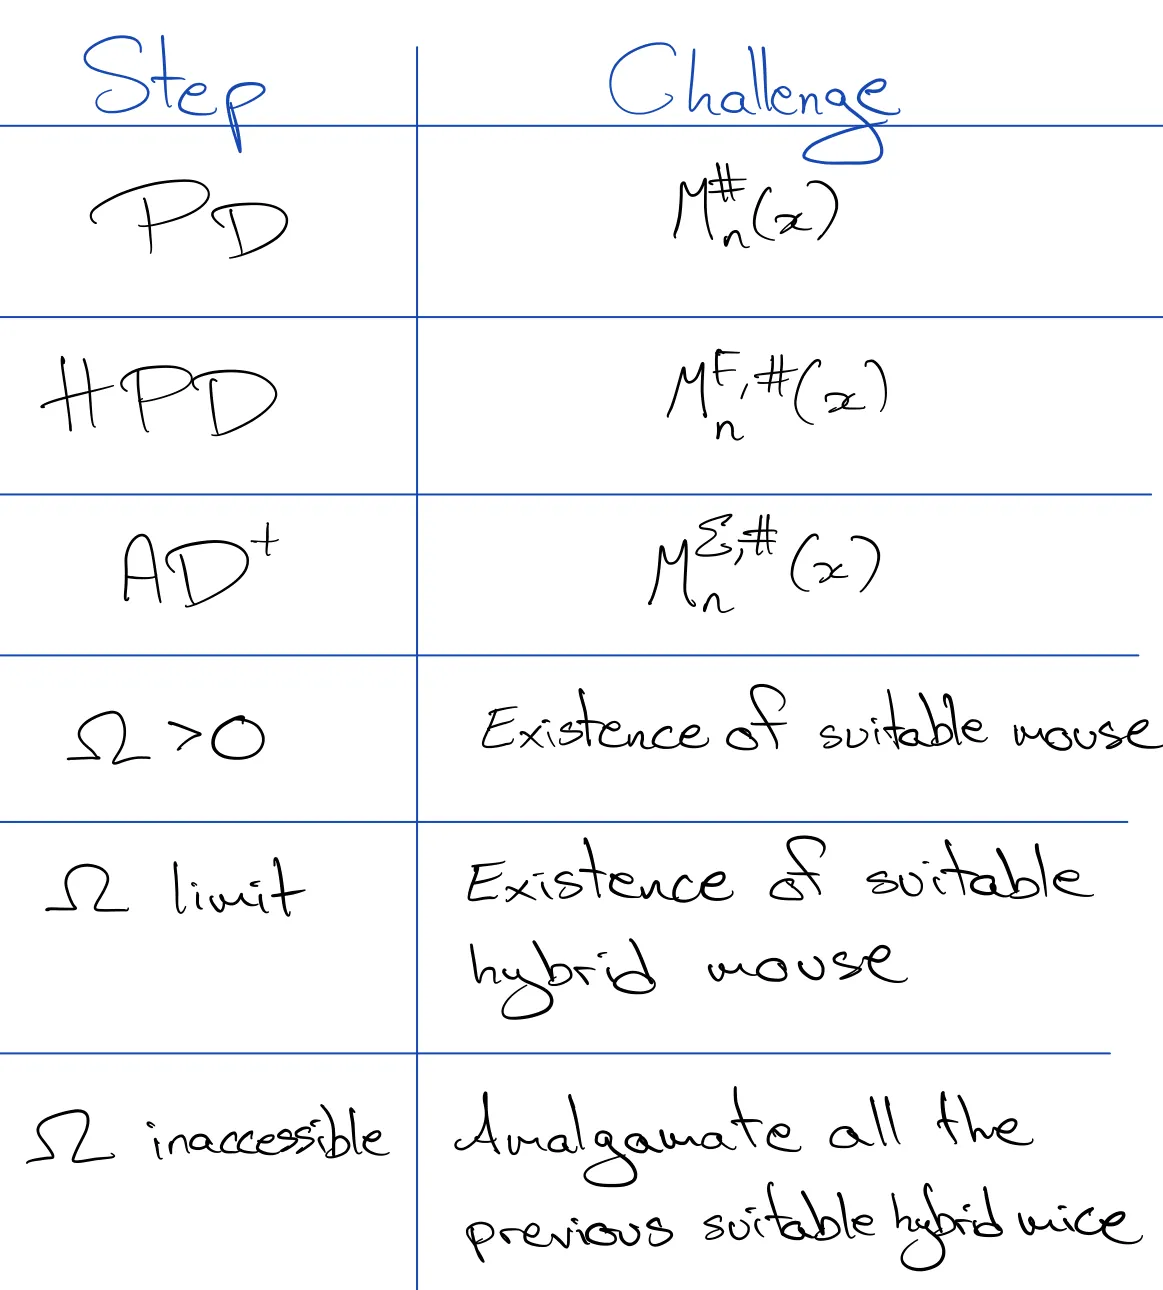 Step Challenge
PD M_n^#(x)
HPD M_n^{F,#}(x)
AD^+ M_n^{Σ,#}(x)
Ω>0 Existence of suitable mouse
Ω limit Existence of suitable
hybrid mouse
Ω inaccessible Amalgamate all the
previous suitable hybrid mice